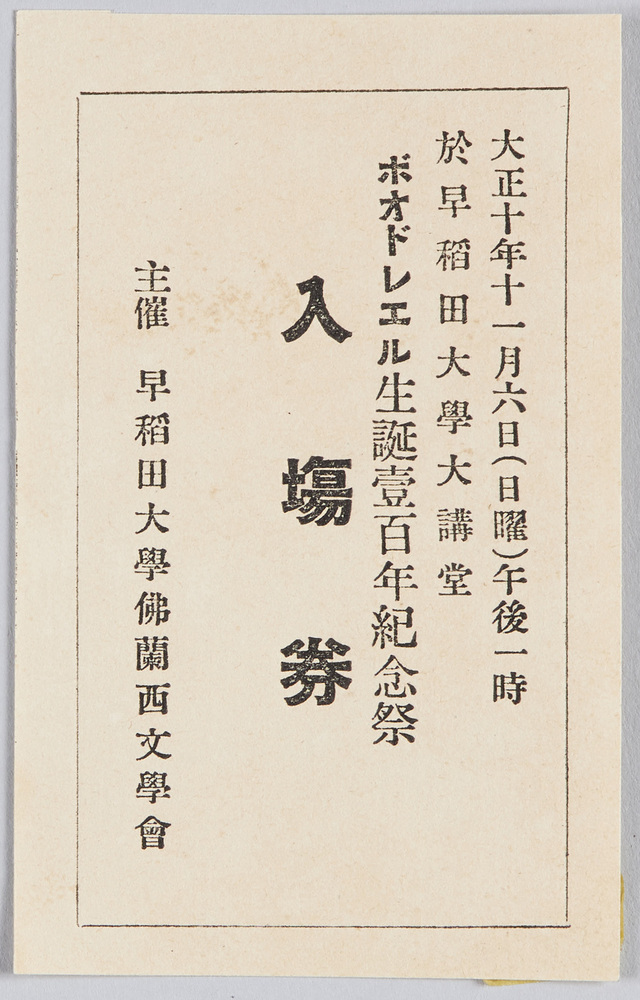 大正十年十一月六日(日曜)午後一時
於早稻田大學大講堂
ボオドレエル生誕壹百年紀念祭
入塲劵
主催 早稻田大學佛蘭西文學會